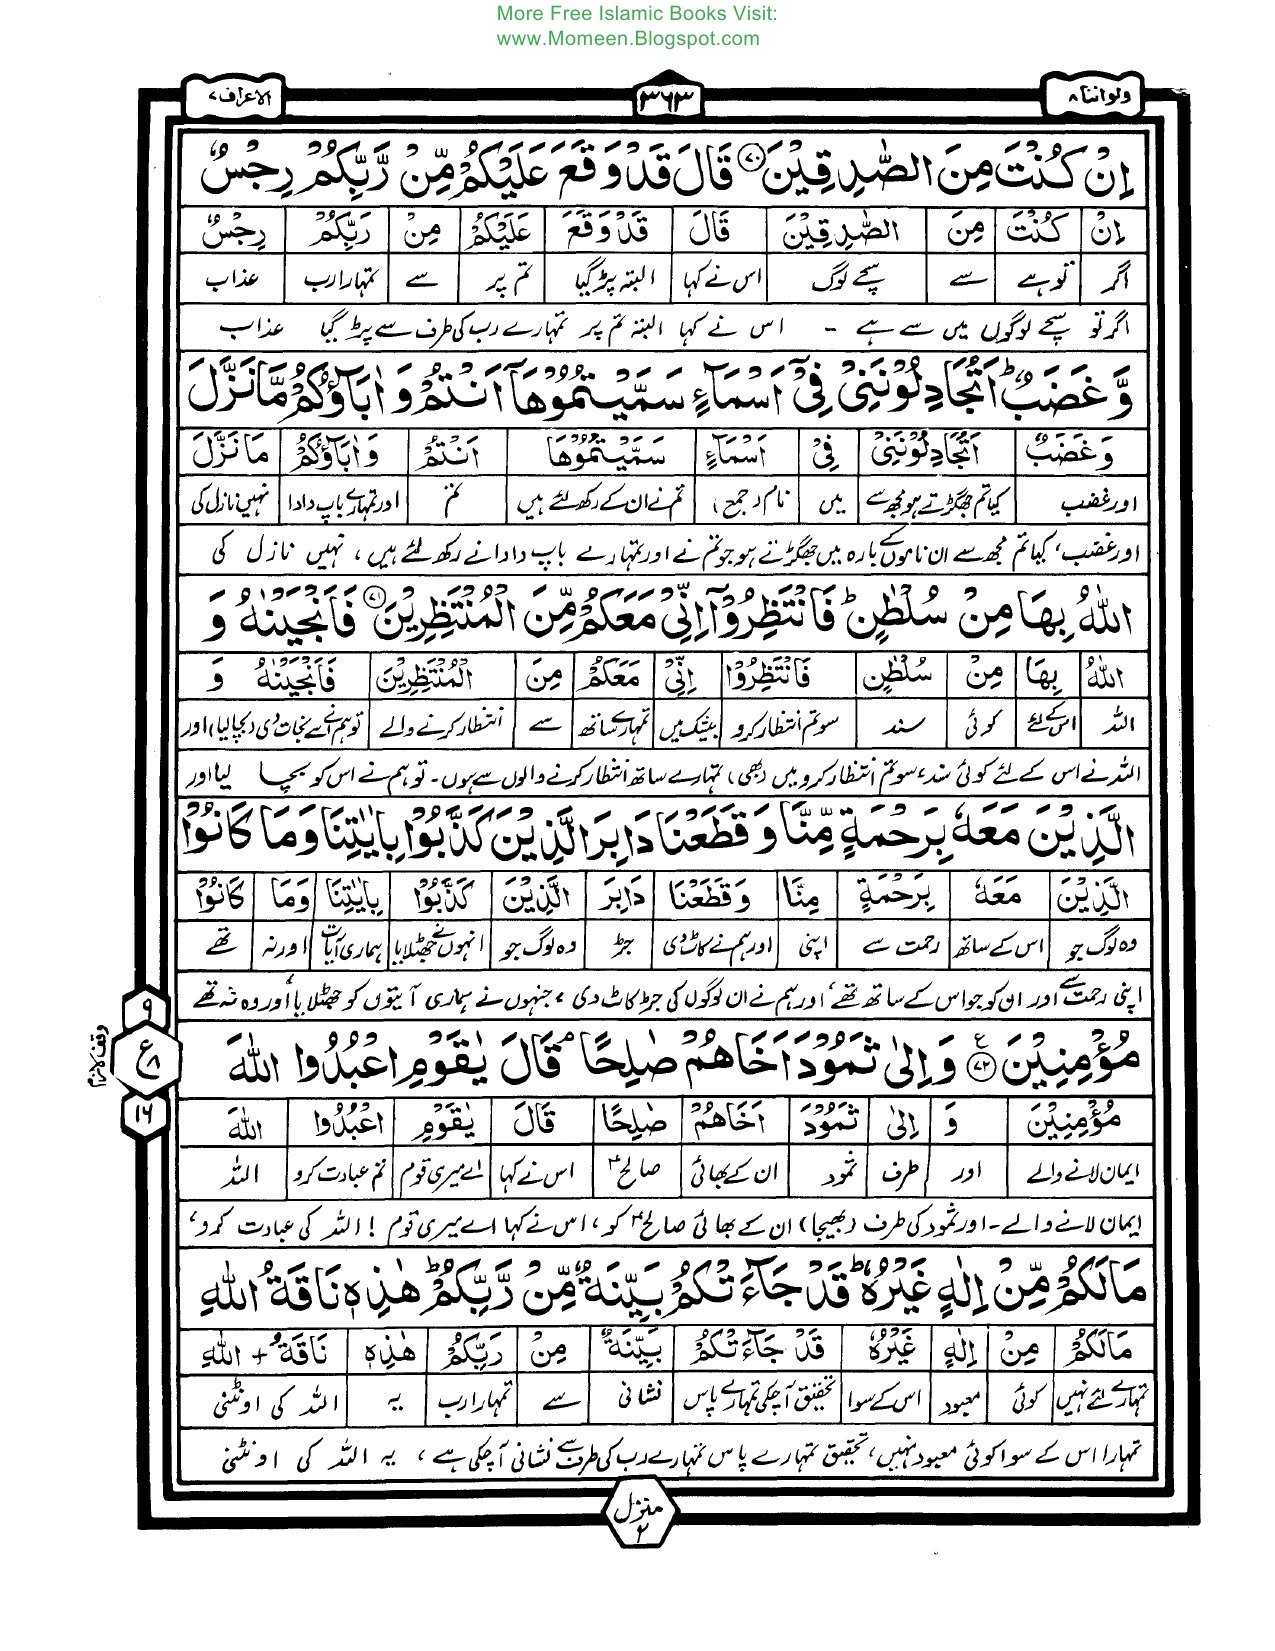 More Free Islamic Books Visit:
www.Momeen.Blogspot.com
ولواننا ۸
۳۶۳
الاعراف ۷
اِنْ كُنْتَ مِنَ الصّٰدِقِيْنَ ۷۰ قَالَ قَدْ وَقَعَ عَلَيْكُمْ مِّنْ رَّبِّكُمْ رِجْسٌ
اِنْ كُنْتَ مِنَ الصّٰدِقِيْنَ قَالَ قَدْ وَقَعَ عَلَيْكُمْ مِنْ رَبِّكُمْ رِجْسٌ
اگر تو ہے سے سچے لوگ اس نے کہا البتہ پڑگیا تم پر سے تمہارا رب عذاب
اگر تو سچے لوگوں میں سے ہے - اس نے کہا البتہ تم پر تمہارے رب کی طرف سے پڑ گیا عذاب
وَّغَضَبٌ ؕ اَتُجَادِلُوْنَنِيْ فِيْٓ اَسْمَآءٍ سَمَّيْتُمُوْهَآ اَنْتُمْ وَ اٰبَآؤُكُمْ مَّا نَزَّلَ
وَغَضَبٌ اَتُجَادِلُوْنَنِيْ فِيْ اَسْمَآءٍ سَمَّيْتُمُوْهَا اَنْتُمْ وَاٰبَاؤُكُمْ مَا نَزَّلَ
اور غضب کیا تم جھگڑتے ہو مجھ سے میں نام (جمع) تم نے ان کے رکھ لئے ہیں تم اور تمہارے باپ دادا نہیں نازل کی
اور غضب، کیا تم مجھ سے ان ناموں کے بارہ میں جھگڑتے ہو جو تم نے اور تمہارے باپ دادا نے رکھ لئے ہیں، نہیں نازل کی
اللّٰهُ بِهَا مِنْ سُلْطٰنٍ ؕ فَانْتَظِرُوْٓا اِنِّيْ مَعَكُمْ مِّنَ الْمُنْتَظِرِيْنَ ۷۱ فَاَنْجَيْنٰهُ وَ
اللّٰهُ بِهَا مِنْ سُلْطٰنٍ فَانْتَظِرُوْا اِنِّيْ مَعَكُمْ مِنَ الْمُنْتَظِرِيْنَ فَاَنْجَيْنٰهُ وَ
اللہ اس کے لئے کوئی سند سو تم انتظار کرو بیشک میں تمہارے ساتھ سے انتظار کرنے والے تو ہم نے اسے نجات دی (بچا لیا) اور
اللہ نے اس کے لئے کوئی سند، سو تم انتظار کرو میں (بھی) تمہارے ساتھ انتظار کرنے والوں سے ہوں - تو ہم نے اس کو بچا لیا اور
الَّذِيْنَ مَعَهٗ بِرَحْمَةٍ مِّنَّا وَقَطَعْنَا دَابِرَ الَّذِيْنَ كَذَّبُوْا بِاٰيٰتِنَا وَمَا كَانُوْا
الَّذِيْنَ مَعَهٗ بِرَحْمَةٍ مِنَّا وَقَطَعْنَا دَابِرَ الَّذِيْنَ كَذَّبُوْا بِاٰيٰتِنَا وَمَا كَانُوْا
وہ لوگ جو اس کے ساتھ رحمت سے اپنی اور ہم نے کاٹ دی جڑ وہ لوگ جو انہوں نے جھٹلایا ہماری آیات اور نہ تھے
اپنی رحمت سے اور ان کو جو اس کے ساتھ تھے، اور ہم نے ان لوگوں کی جڑ کاٹ دی، جنہوں نے ہماری آیتوں کو جھٹلایا، اور وہ نہ تھے
۹
ع
۸
۱۶
وقف لازم
مُؤْمِنِيْنَ ۷۲ ع وَاِلٰى ثَمُوْدَ اَخَاهُمْ صٰلِحًا ۘ قَالَ يٰقَوْمِ اعْبُدُوا اللّٰهَ
مُؤْمِنِيْنَ وَ اِلٰى ثَمُوْدَ اَخَاهُمْ صٰلِحًا قَالَ يٰقَوْمِ اعْبُدُوا اللّٰهَ
ایمان لانے والے اور طرف ثمود ان کے بھائی صالحؑ اس نے کہا اے میری قوم تم عبادت کرو اللہ
ایمان لانے والے - اور ثمود کی طرف (بھیجا) ان کے بھائی صالحؑ کو، اس نے کہا اے میری قوم! اللہ کی عبادت کرو،
مَا لَكُمْ مِّنْ اِلٰهٍ غَيْرُهٗ ؕ قَدْ جَآءَتْكُمْ بَيِّنَةٌ مِّنْ رَّبِّكُمْ ؕ هٰذِهٖ نَاقَةُ اللّٰهِ
مَا لَكُمْ مِنْ اِلٰهٍ غَيْرُهٗ قَدْ جَآءَتْكُمْ بَيِّنَةٌ مِنْ رَبِّكُمْ هٰذِهٖ نَاقَةُ + اللّٰهِ
تمہارے لئے نہیں کوئی معبود اس کے سوا تحقیق آچکی تمہارے پاس نشانی سے تمہارا رب یہ اللہ کی اونٹنی
تمہارا اس کے سوا کوئی معبود نہیں، تحقیق تمہارے پاس تمہارے رب کی طرف سے نشانی آچکی ہے، یہ اللہ کی اونٹنی
منزل
۲